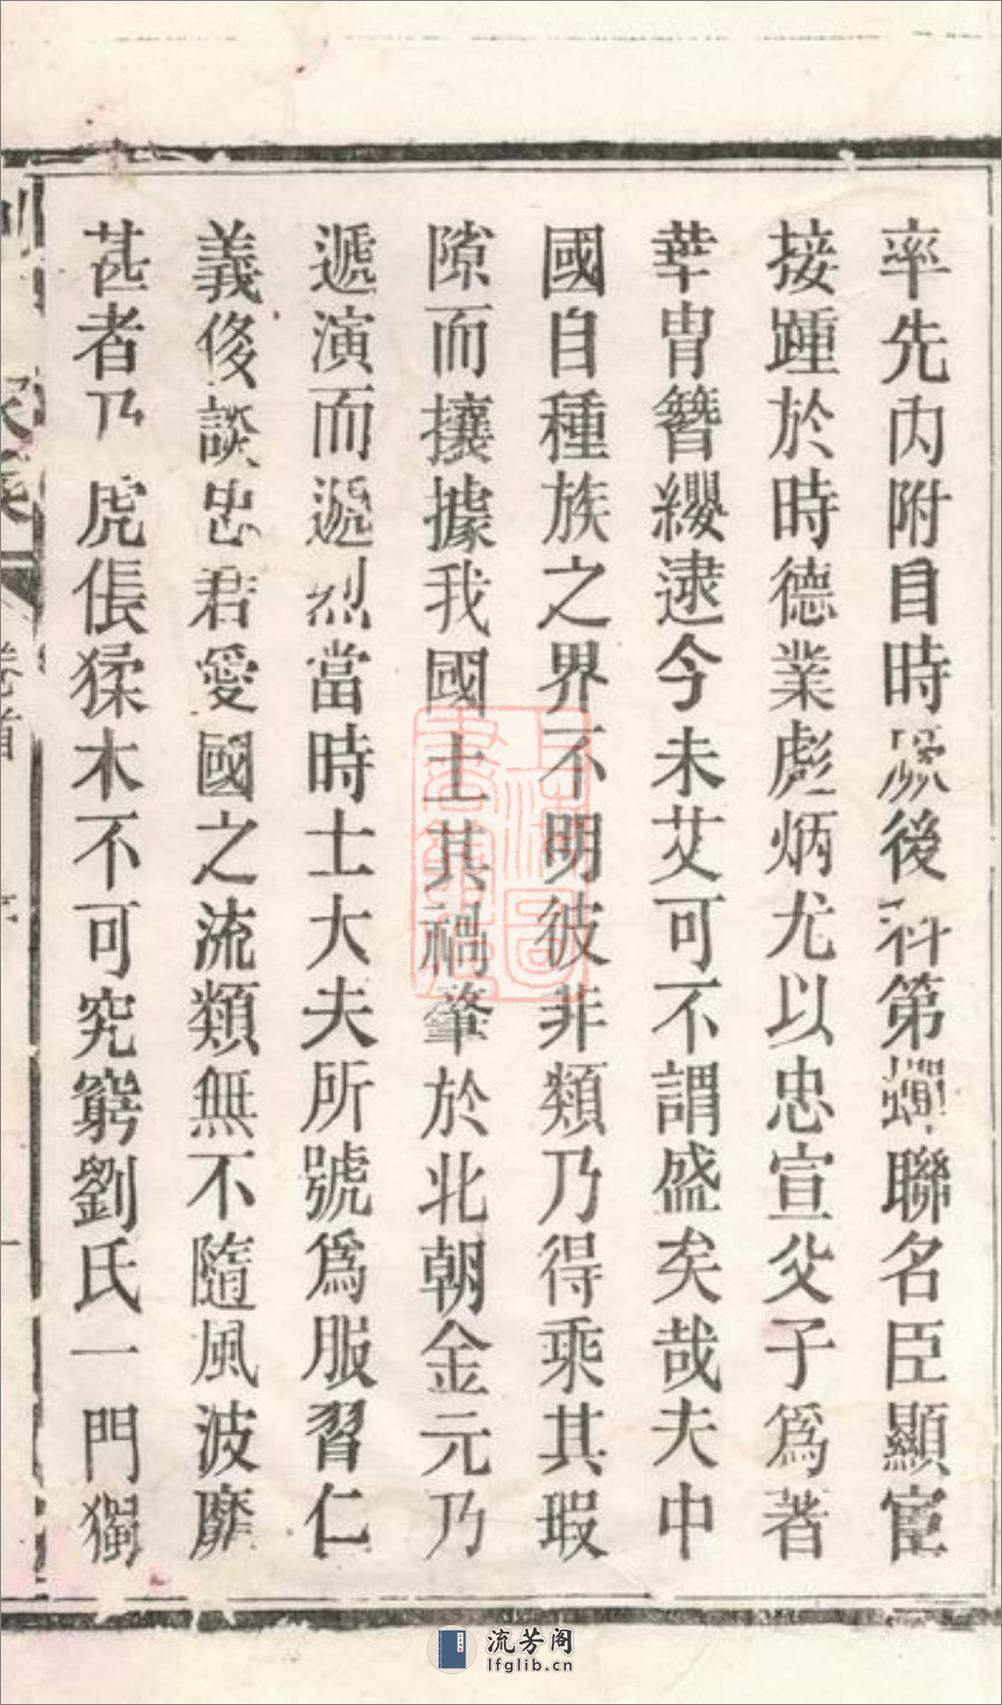 率先內附自時厥後科第蟬聯名臣顯宦
接踵於時德業彪炳尤以忠宣父子爲著
華胄簪纓逮今未艾可不謂盛矣哉夫中
國自種族之界不明彼非類乃得乘其瑕
隙而攘據我國土其禍肇於北朝金元乃
遞演而遞烈當時士大夫所號爲服習仁
義侈談忠君愛國之流類無不隨風波靡
甚者乃虎倀猱木不可究窮劉氏一門獨
卷首
序
一
上海圖
書館藏
流芳阁
lfglib.cn